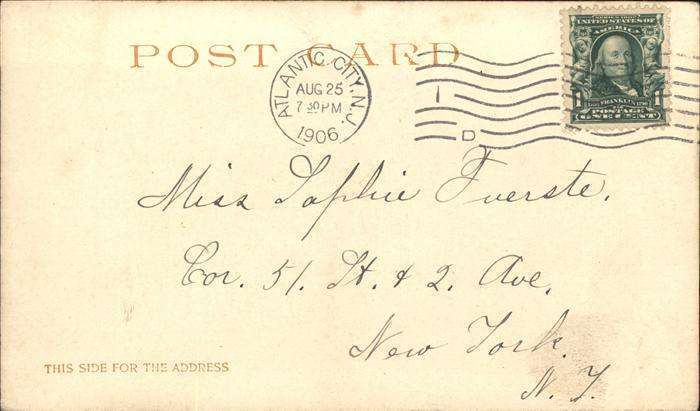 POST CARD
ATLANTIC CITY, N.J.
AUG 25
7 30 PM
1906
D
SERIES 1902
UNITED STATES OF
AMERICA
1 FRANKLIN 1
POSTAGE
ONE CENT
Miss Sophie Fuerste.
Cor. 51. St. & 2. Ave.
New York.
N. Y.
THIS SIDE FOR THE ADDRESS